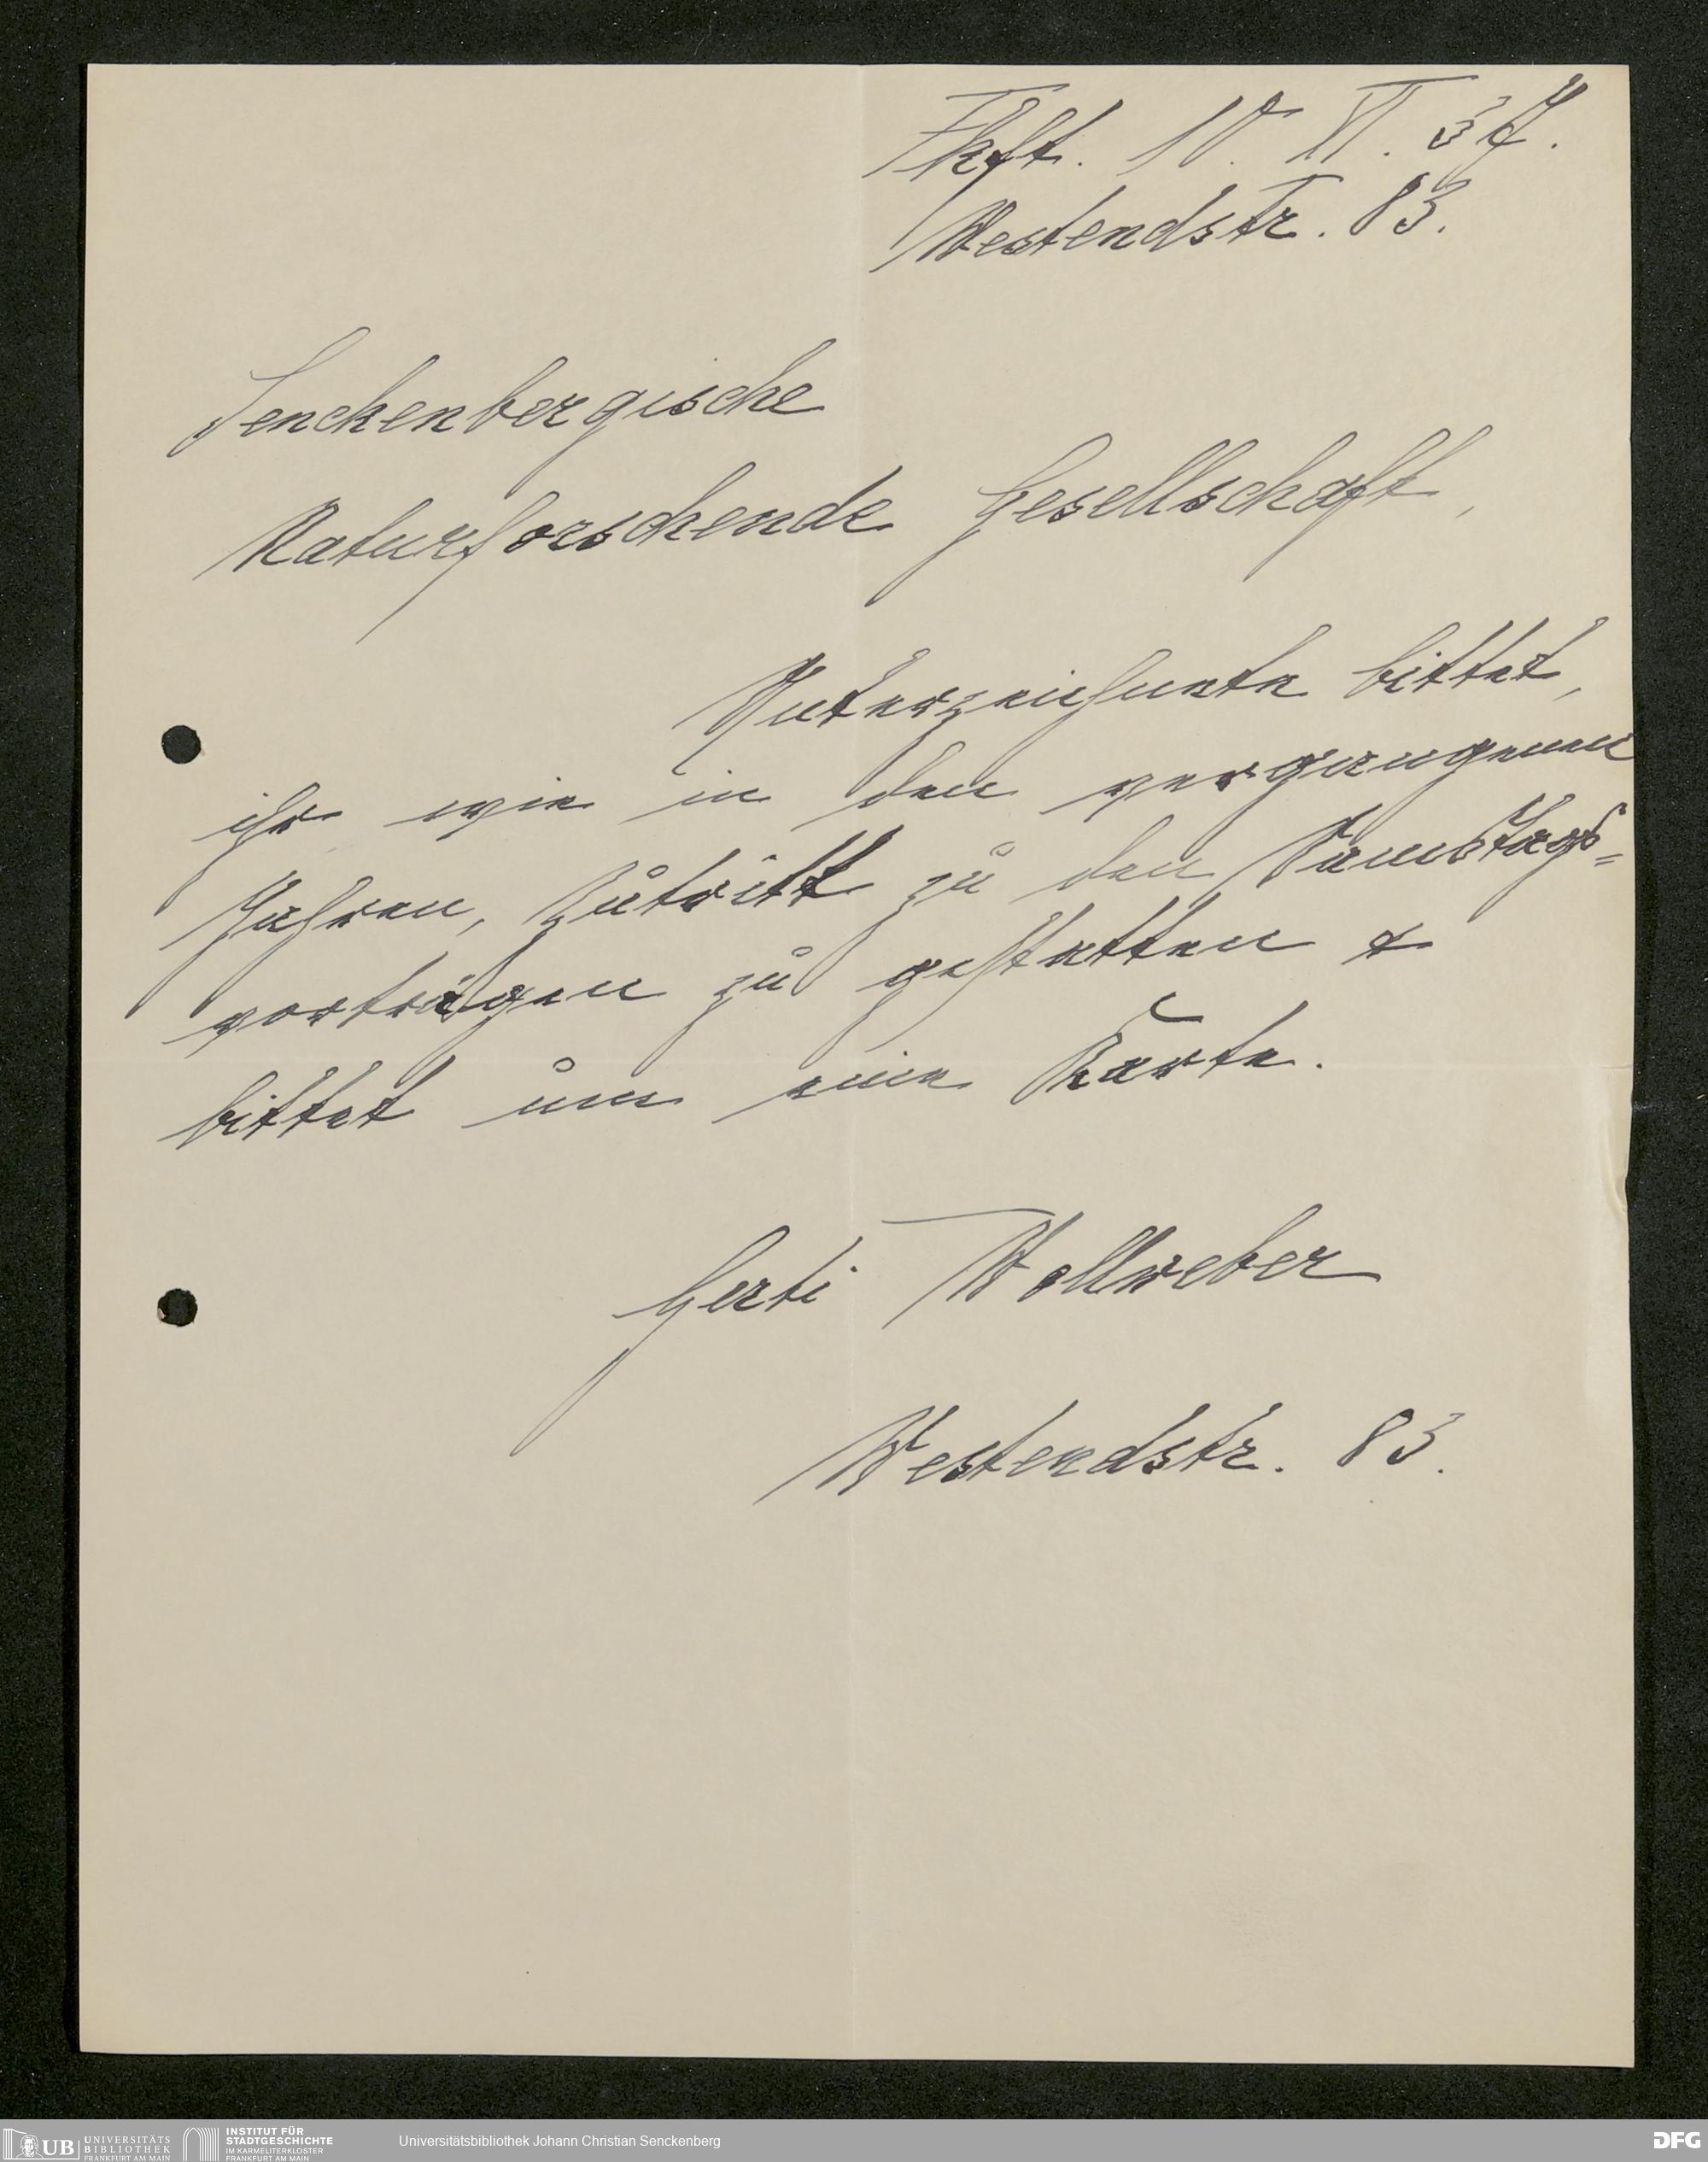 Fkft. 10. XI. 37.
Westendstr. 83.
Senckenbergische
Naturforschende Gesellschaft,
Unterzeichnete bittet,
ihr wie in den vergangenen
Jahren, Zutritt zu den Samstags=
vorträgen zu gestatten &
bittet um eine Karte.
Gerti Wollweber
Westendstr. 83.
UB
UNIVERSITÄTS
BIBLIOTHEK
FRANKFURT AM MAIN
INSTITUT FÜR
STADTGESCHICHTE
IM KARMELITERKLOSTER
FRANKFURT AM MAIN
Universitätsbibliothek Johann Christian Senckenberg
DFG